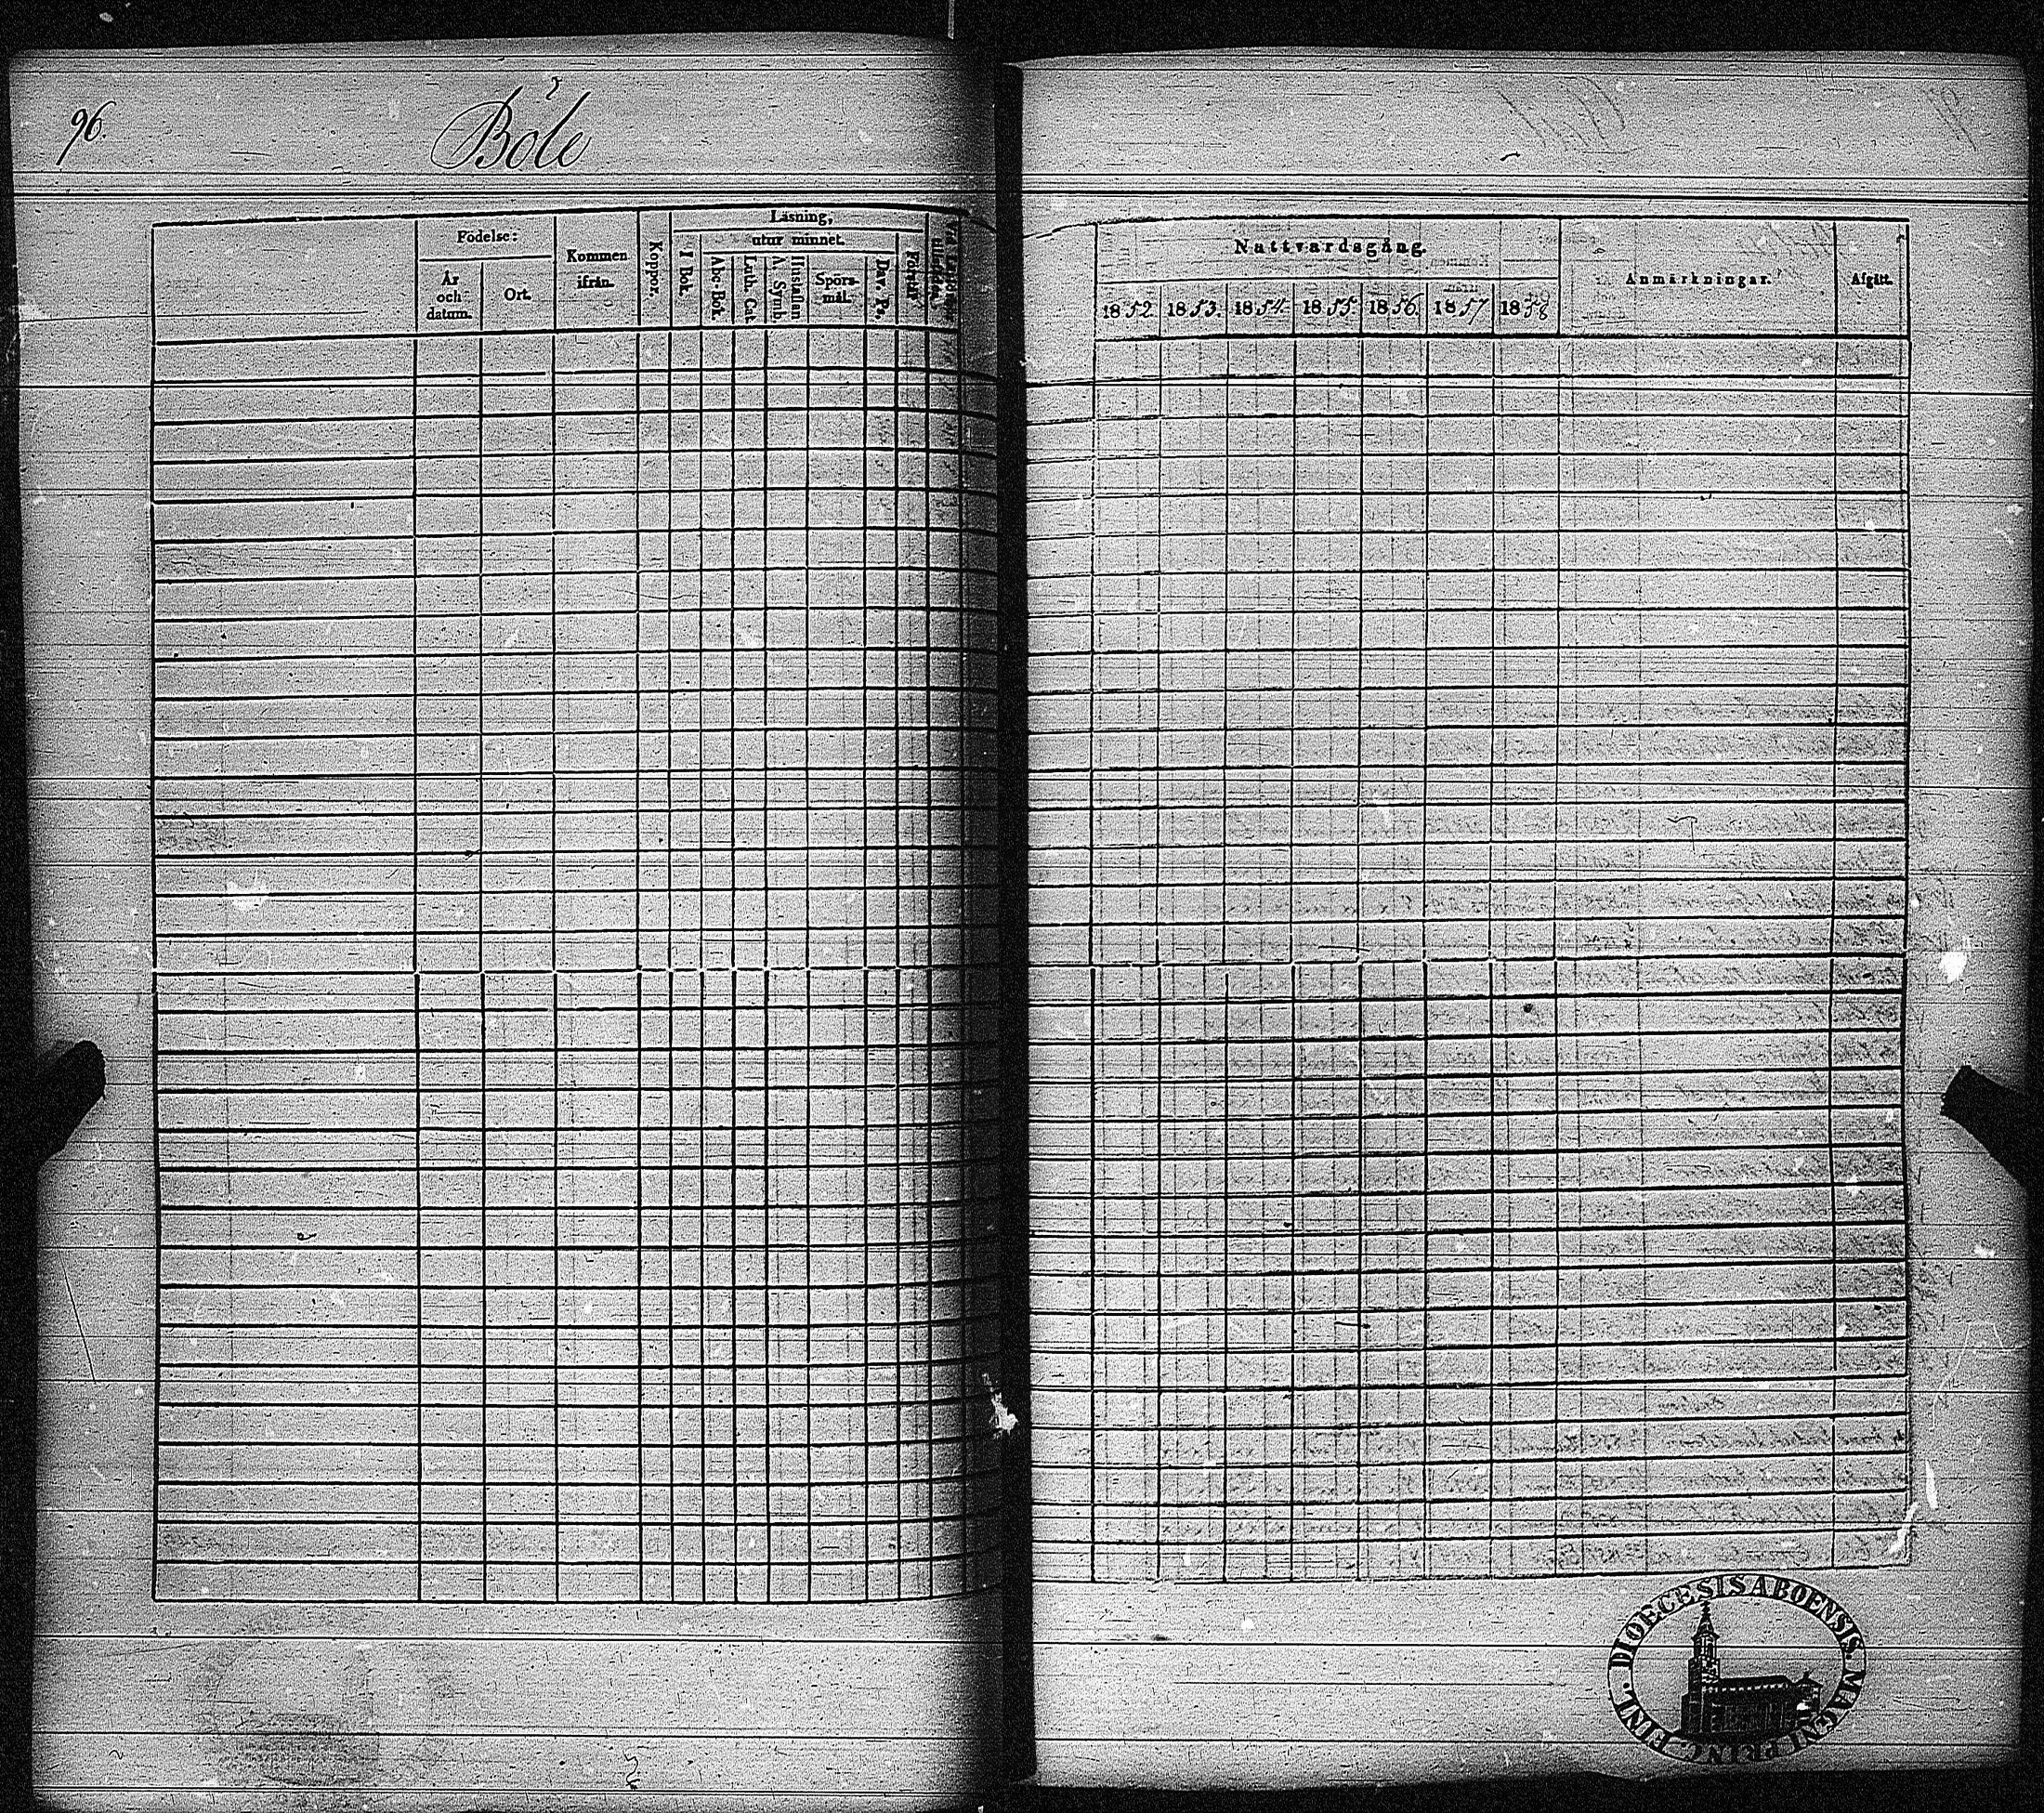 96.
Böle
Födelse:
År
och
datum.
Ort.
Kommen
ifrån.
Koppor.
Läsning,
utur minnet.
I Bok.
Abc-Bok
Luth. Cat.
Hustaflan
A. Symb.
Spörs-
mål.
Dav. Ps.
Förstår
Nattvardsgång.
1852. 1853. 1854. 1855. 1856. 1857 1858
Anmärkningar.
Afgått.
DIOECESIS ABOENSIS. MAGNI PRINC. FINL.